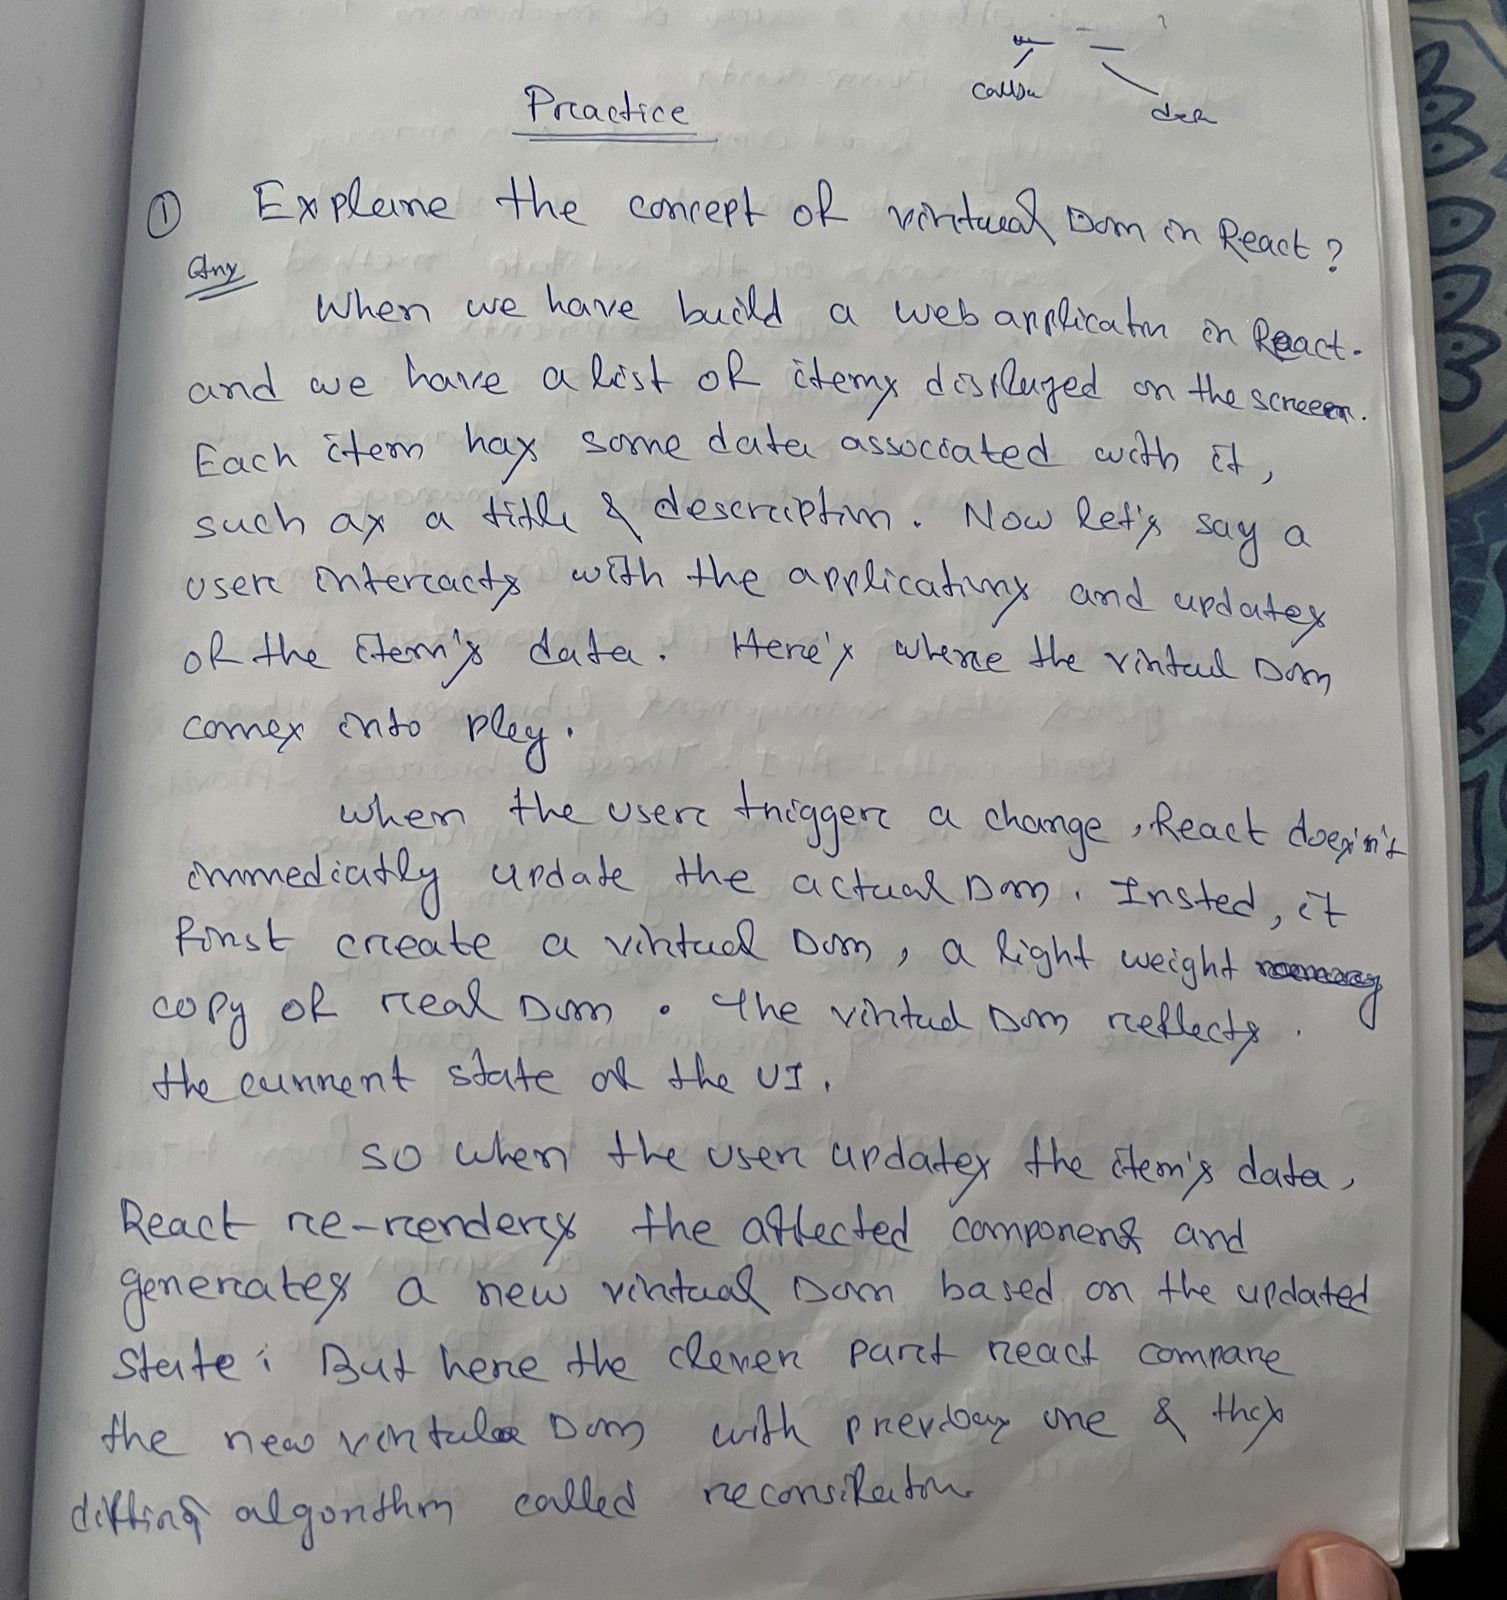 Practice
① Explane the concept of virtual Dom in React?
Ans
When we have build a web application in React.
and we have a list of items displayed on the screen.
Each item has some data associated with it,
such as a title & description. Now let's say a
user interacts with the applications and updates
of the item's data. Here's where the virtual Dom
comes into play.
when the user trigger a change, React doesn't
immediatly update the actual Dom. Insted, it
first create a virtual Dom, a light weight
copy of real Dom. The virtual Dom reflects.
the current state of the UI.
so when the user updates the item's data,
React re-renders the affected component and
generates a new virtual Dom based on the updated
state; But here the clever part react compare
the new virtual Dom with previous one & this
diffing algorithm called reconsilation